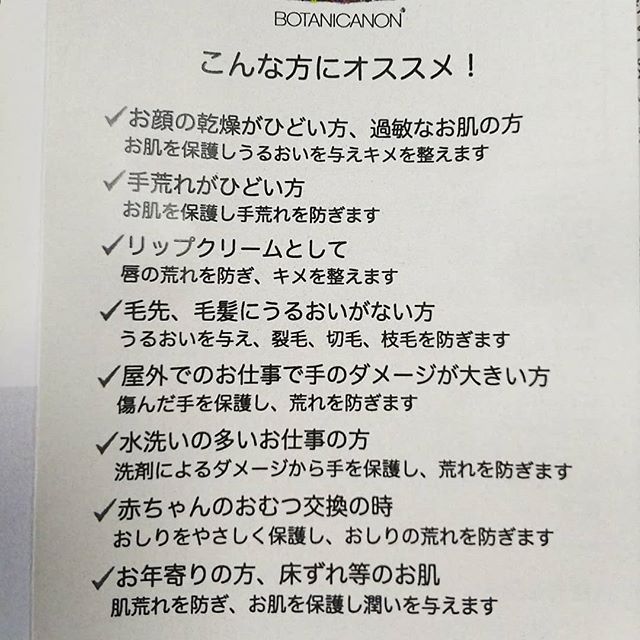 BOTANICANON®
こんな方にオススメ！
✓お顔の乾燥がひどい方、過敏なお肌の方
お肌を保護しうるおいを与えキメを整えます
✓手荒れがひどい方
お肌を保護し手荒れを防ぎます
✓リップクリームとして
唇の荒れを防ぎ、キメを整えます
✓毛先、毛髪にうるおいがない方
うるおいを与え、裂毛、切毛、枝毛を防ぎます
✓屋外でのお仕事で手のダメージが大きい方
傷んだ手を保護し、荒れを防ぎます
✓水洗いの多いお仕事の方
洗剤によるダメージから手を保護し、荒れを防ぎます
✓赤ちゃんのおむつ交換の時
おしりをやさしく保護し、おしりの荒れを防ぎます
✓お年寄りの方、床ずれ等のお肌
肌荒れを防ぎ、お肌を保護し潤いを与えます